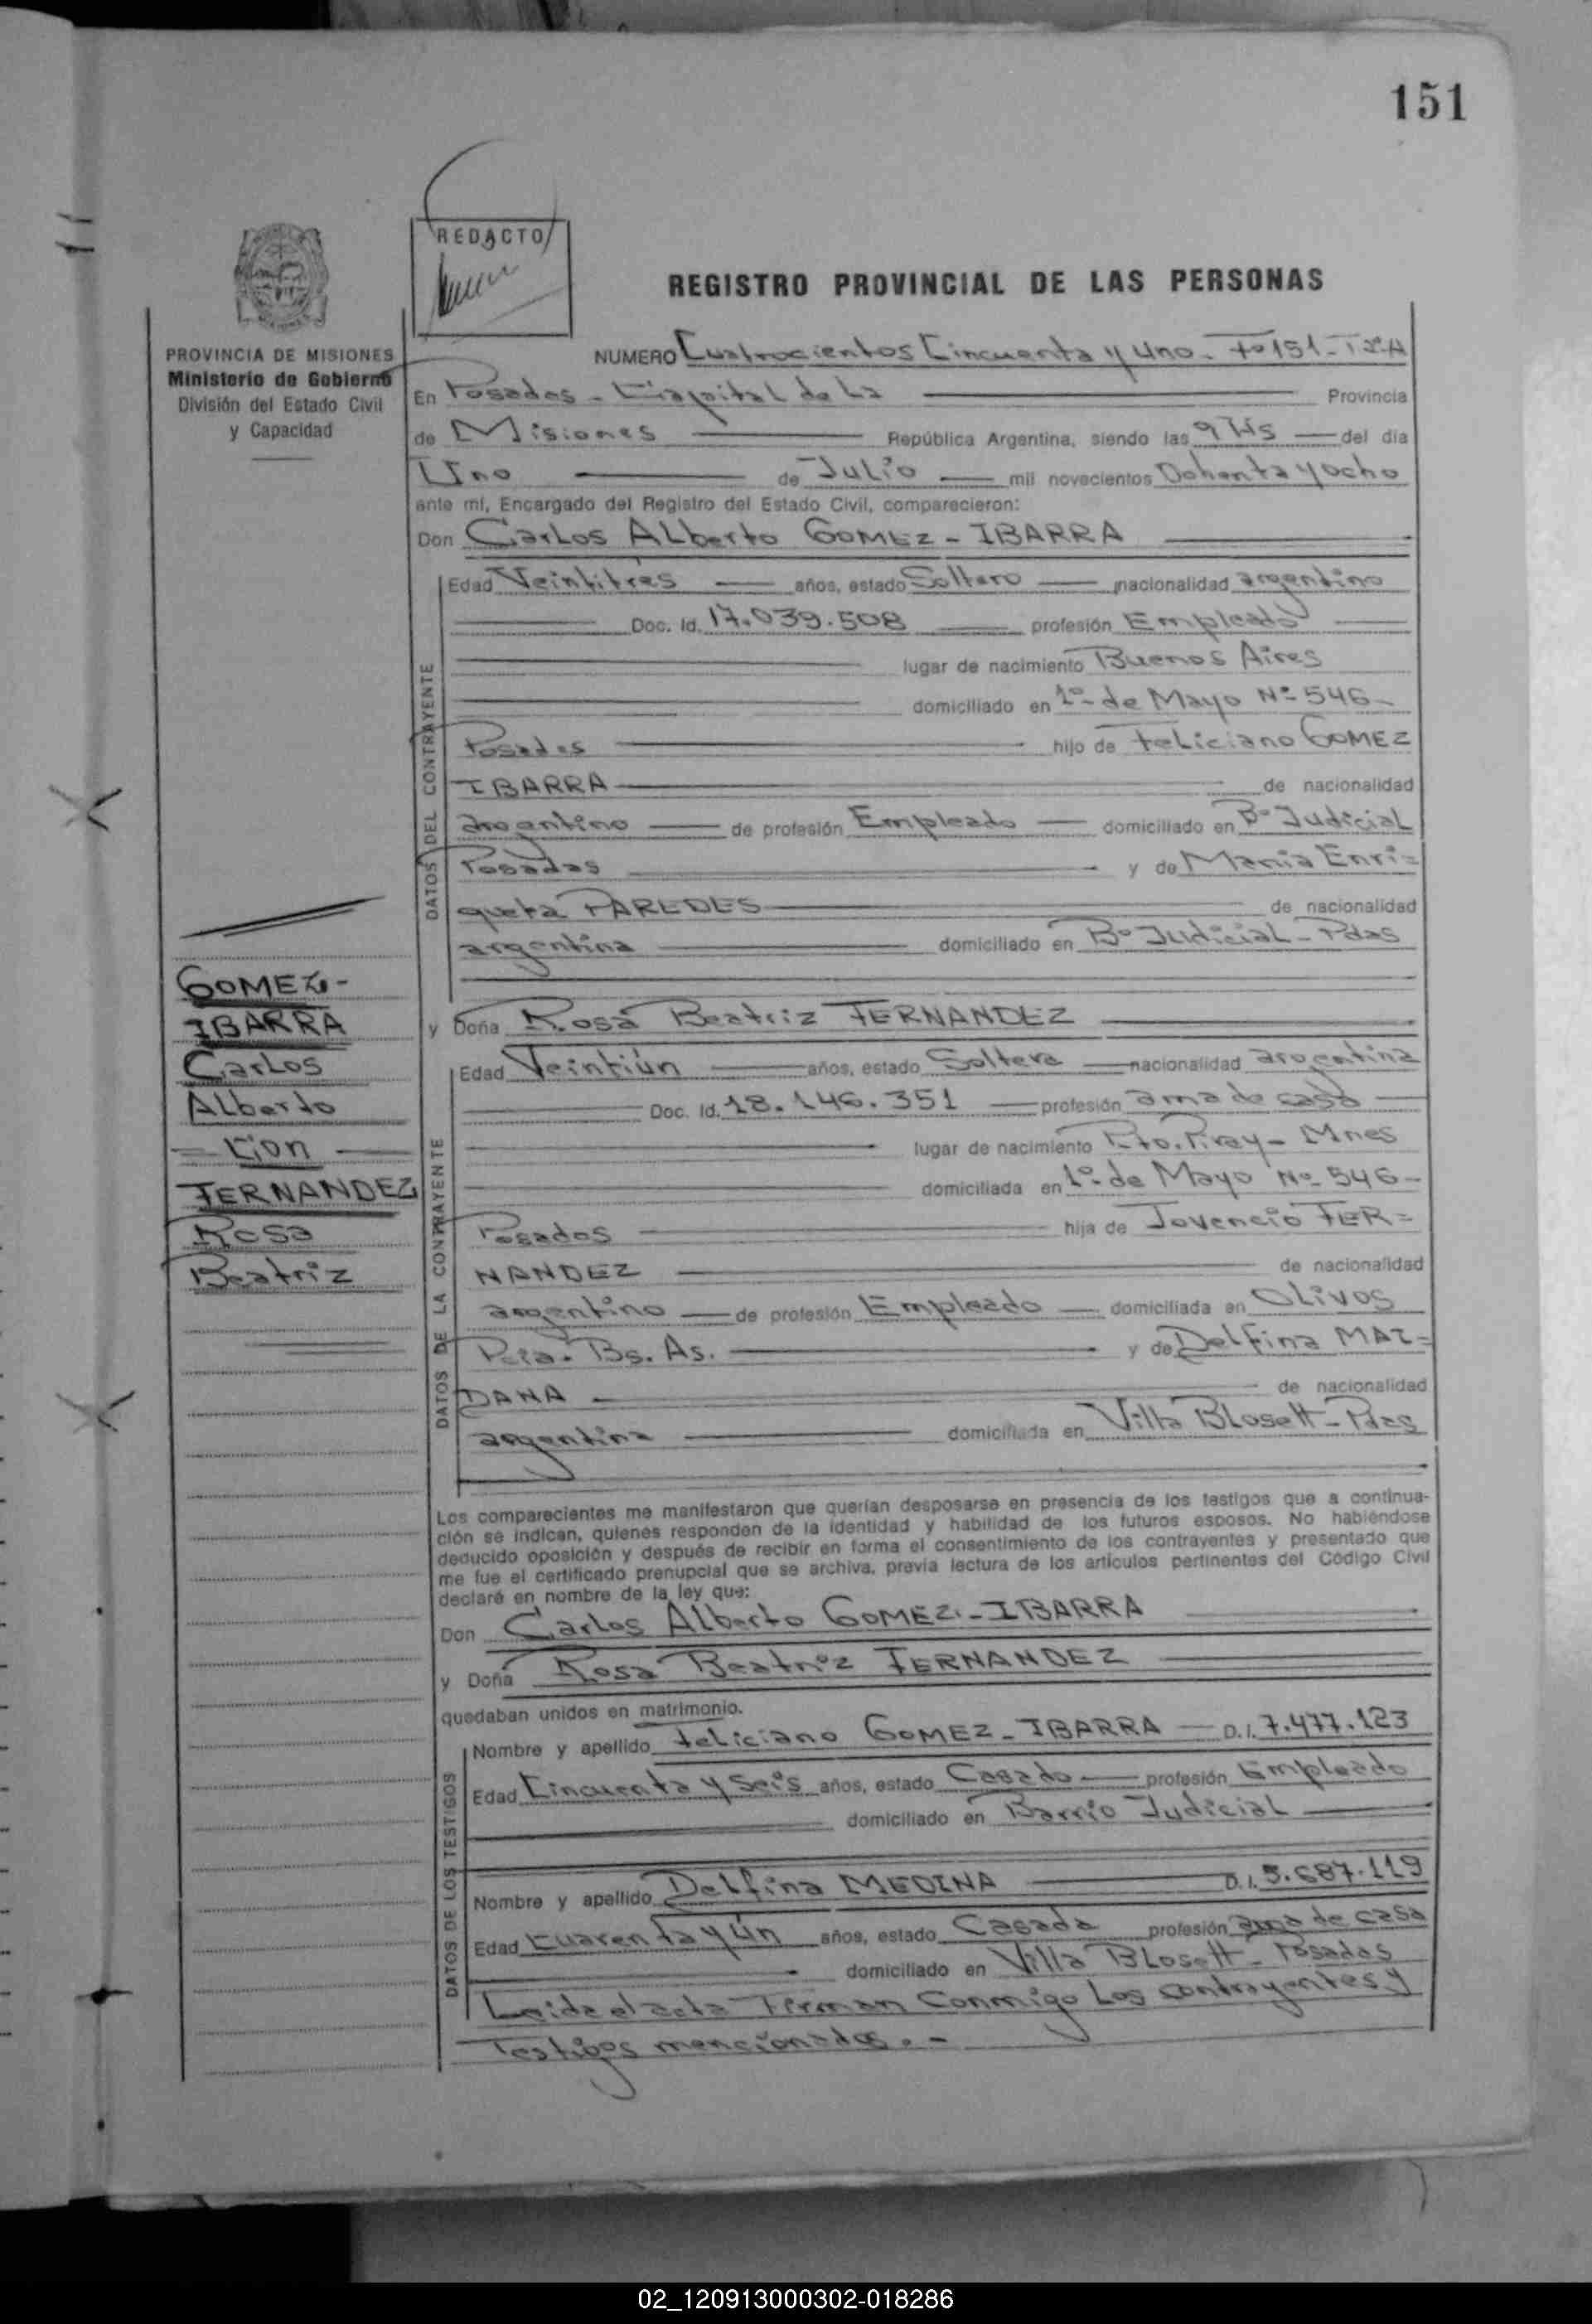 151
REDACTO
REGISTRO PROVINCIAL DE LAS PERSONAS
PROVINCIA DE MISIONES
Ministerio de Gobierno
División del Estado Civil
y Capacidad
NUMERO Cuatrocientos Cincuenta y Uno - Fº 151 -
En Posadas - Capital de La Provincia
de Misiones República Argentina, siendo las 9 Hs del día
Uno de Julio mil novecientos Oohenta y ocho
ante mí, Encargado del Registro del Estado Civil, comparecieron:
Don Carlos Alberto GOMEZ - IBARRA
DATOS DEL CONTRAYENTE
Edad Veintitrés años, estado Soltero nacionalidad argentino
Doc. Id. 17.039.508 profesión Empleado
lugar de nacimiento Buenos Aires
domiciliado en 1º de Mayo Nº 546 -
Posadas hijo de Feliciano GOMEZ
IBARRA de nacionalidad
argentino de profesión Empleado domiciliado en Bº Judicial
Posadas y de Maria Enri=
queta PAREDES de nacionalidad
argentina domiciliado en Bº Judicial - Pdas
GOMEZ -
IBARRA
Carlos
Alberto
Con
FERNANDEZ
Rosa
Beatriz
y Doña Rosa Beatriz FERNANDEZ
DATOS DE LA CONTRAYENTE
Edad Veintiún años, estado Soltera nacionalidad argentina
Doc. Id. 18.146.351 profesión ama de casa
lugar de nacimiento Pto. Piray - Mnes
domiciliada en 1º de Mayo Nº 546 -
Posadas hija de Jovencio FER=
NANDEZ de nacionalidad
argentino de profesión Empleado domiciliada en Olivos
Pcia. Bs. As. y de Delfina MAI=
DANA de nacionalidad
argentina domiciliada en Villa Blosett - Pdas
Los comparecientes me manifestaron que querían desposarse en presencia de los testigos que a continua-
ción se indican, quienes responden de la identidad y habilidad de los futuros esposos. No habiéndose
deducido oposición y después de recibir en forma el consentimiento de los contrayentes y presentado que
me fue el certificado prenupcial que se archiva, previa lectura de los artículos pertinentes del Código Civil
declaré en nombre de la ley que:
Don Carlos Alberto GOMEZ - IBARRA
y Doña Rosa Beatriz FERNANDEZ
quedaban unidos en matrimonio.
DATOS DE LOS TESTIGOS
Nombre y apellido Feliciano GOMEZ - IBARRA D.I. 7.477.123
Edad Cincuenta y Seis años, estado Casado profesión Empleado
domiciliado en Barrio Judicial
Nombre y apellido Delfina MEDINA D.I. 5.687.119
Edad Cuarenta y Ún años, estado Casada profesión ama de casa
domiciliado en Villa Blosett - Posadas
Leida el acta Firman Conmigo Los contrayentes y
Testigos mencionados. -
02_120913000302-018286